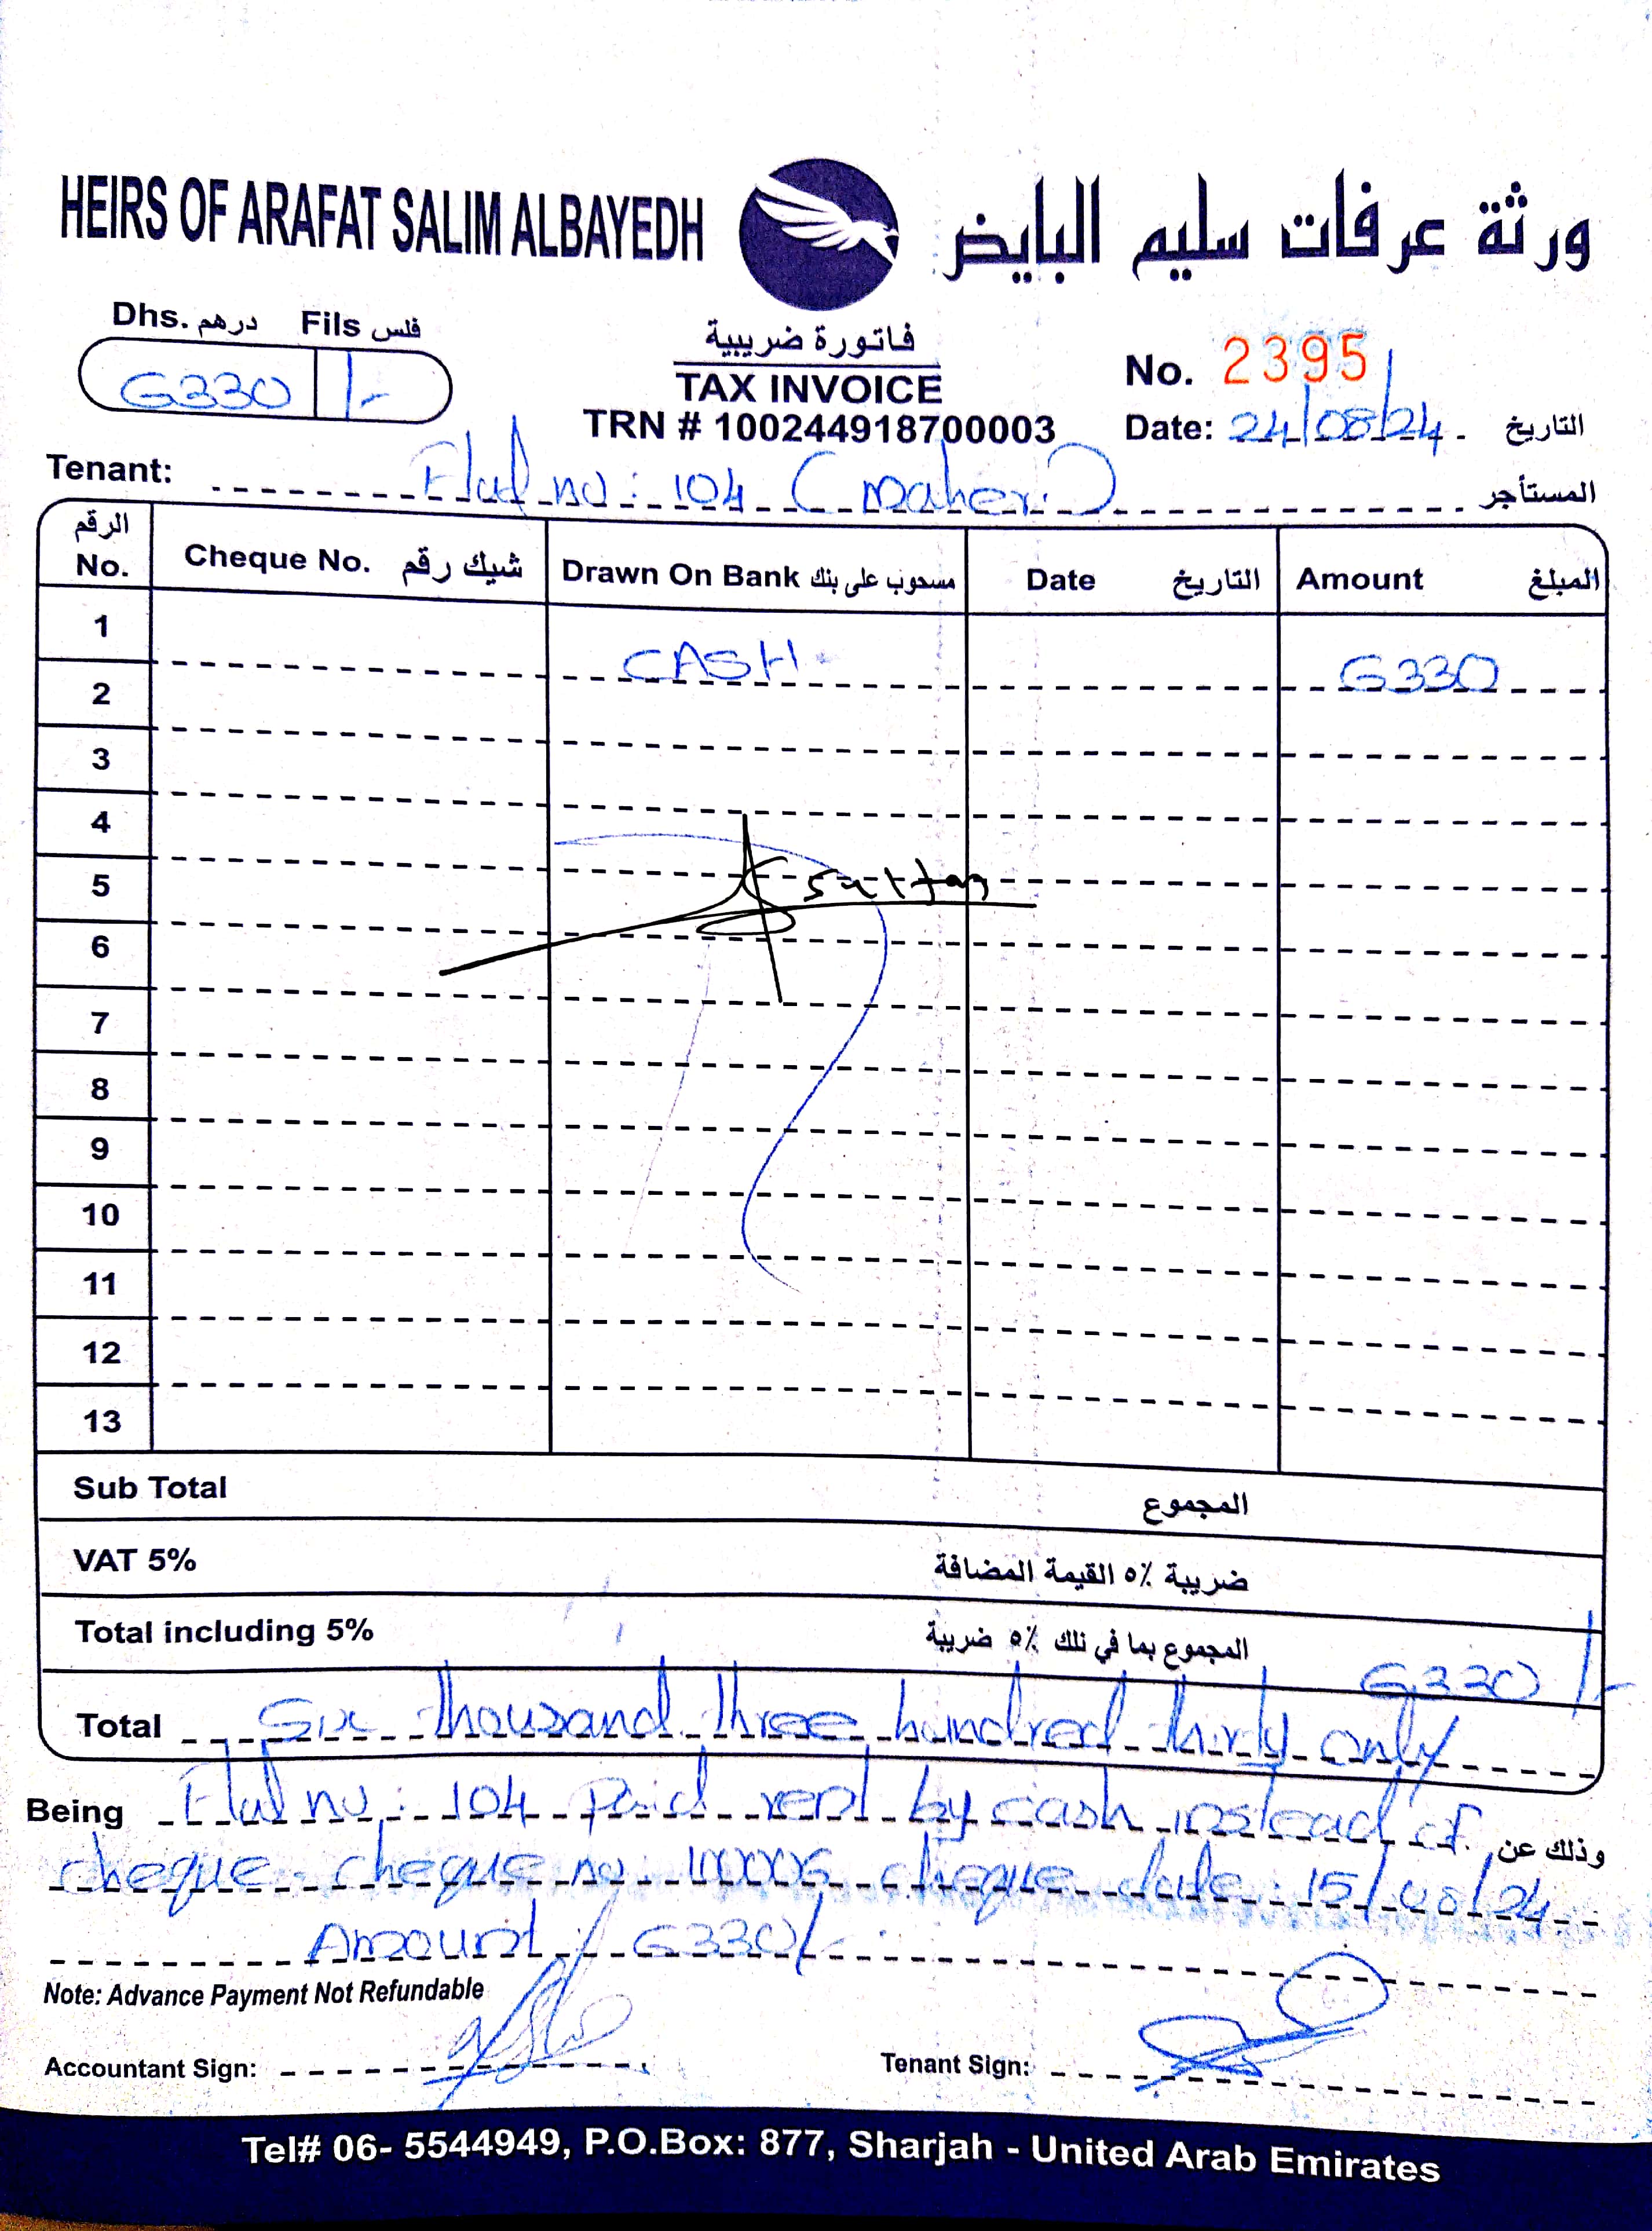 HEIRS OF ARAFAT SALIM ALBAYEDH ورثة عرفات سليم البايض
Dhs. درهم Fils فلس
6330 /-
فاتورة ضريبية
TAX INVOICE
TRN # 100244918700003
No. 2395
Date: 24/08/24 التاريخ
Tenant: Flat no: 104 (Maher) المستأجر
الرقم No. Cheque No. شيك رقم Drawn On Bank مسحوب على بنك Date التاريخ Amount المبلغ
1 CASH 6330
2
3
4
5 Sultan
6
7
8
9
10
11
12
13
Sub Total المجموع
VAT 5% ضريبة ٥٪ القيمة المضافة
Total including 5% المجموع بما في ذلك ٥٪ ضريبة 6330/-
Total Six thousand three hundred thirty only
Being Flat no: 104 Paid rent by cash instead of وذلك عن
cheque. cheque no: cheque date: 15/08/24
Amount: 6330/-
Note: Advance Payment Not Refundable
Accountant Sign: Tenant Sign:
Tel# 06- 5544949, P.O.Box: 877, Sharjah - United Arab Emirates